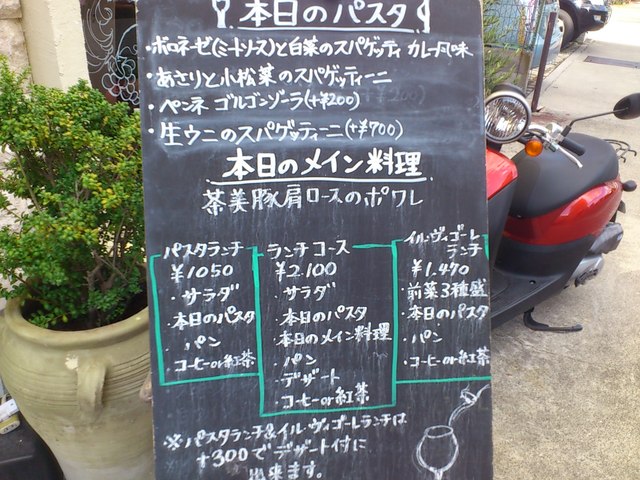 本日のパスタ
・ボロネーゼ(ミートソース)と白菜のスパゲッティ カレー風味
・あさりと小松菜のスパゲッティーニ
・ペンネ ゴルゴンゾーラ(+¥200)
・生ウニのスパゲッティーニ(+¥700)
本日のメイン料理
茶美豚肩ロースのポワレ
パスタランチ
¥1050
・サラダ
・本日のパスタ
・パン
・コーヒーor紅茶
ランチコース
¥2.100
・サラダ
・本日のパスタ
・本日のメイン料理
・パン
・デザート
・コーヒーor紅茶
イル・ヴィゴーレ
ランチ
¥1.470
・前菜3種盛
・本日のパスタ
・パン
・コーヒーor紅茶
※パスタランチ&イル・ヴィゴーレランチは
+300でデザート付に
出来ます。